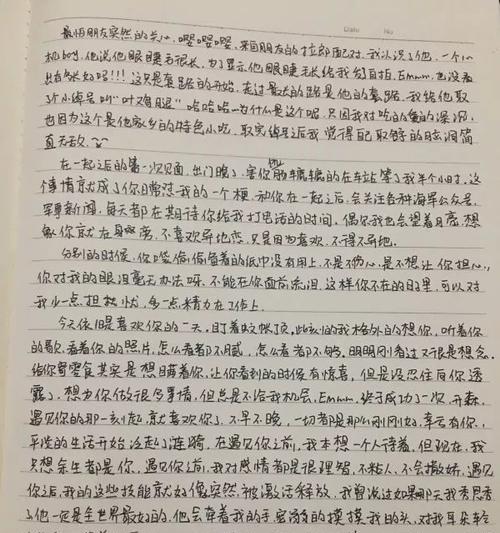 Date No
最怕朋友突然的关心,嘤嘤嘤嘤,来自朋友的拉郎配对,我认识了他,一个小
机 boy,他说他眼睫毛很长,为了显示他眼睫毛长给我发自拍,Emmm,也没看
出有多长好吗!!!这只是套路的开始,走过最长的路是他的套路,我给他取
了个小绰号叫“叶儿粑”哈哈哈为什么是这个呢,只因我对吃的爱的深沉,
也因为这个是他家乡的特色小吃,取完绰号后我觉得自己取的头衔简
直无敌。
在一起之后的第一次见面,出门晚了,害你的在车站等了我半个小时,这
个事情就成了你日常怼我的一个梗,和你在一起之后,会关注各种海军公众号,
军事新闻,每天都在期待你给我打电话的时间,偶尔我也会望着月亮,想
你就在身旁,不喜欢异地恋,只是因为喜欢,不得不异地。
分别的时候,你偷偷塞的纸巾没有用上,不是不伤心,是不想让你担心,
你对我的眼泪毫无办法呀,不能在你面前流泪,这样你不在的日子里,可以对
我少一点担忧,多一点精力在工作上。
今天依旧是喜欢你的一天,盯着蚊帐顶,此刻的我格外的想你,听着你
的歌,看着你的照片,怎么看都不腻,怎么看都不够,明明刚看过又很是想念,
给你寄零食其实是想瞒着你,让你看到的时候有惊喜,但是没忍住向你透
露了,想为你做很多事情,但总是不给我机会,Emmm,终于成功了一次,开森,
遇见你的那一刻起就喜欢你了,不早不晚,一切都是那么刚刚好,幸亏有你,
平淡的生活开始泛起了涟漪,在遇见你之前,我本想一个人待着,但现在,我
只想余生都是你,遇见你之前,我对感情都是很理智,不粘人,不会撒娇,遇见
你之后,我的这些技能就好像突然被激活释放,我曾说过如果那天我秀恩秀
了他一定是全世界最好的,他会牵着我的手,宠溺的摸摸我的头,对我耳朵轻